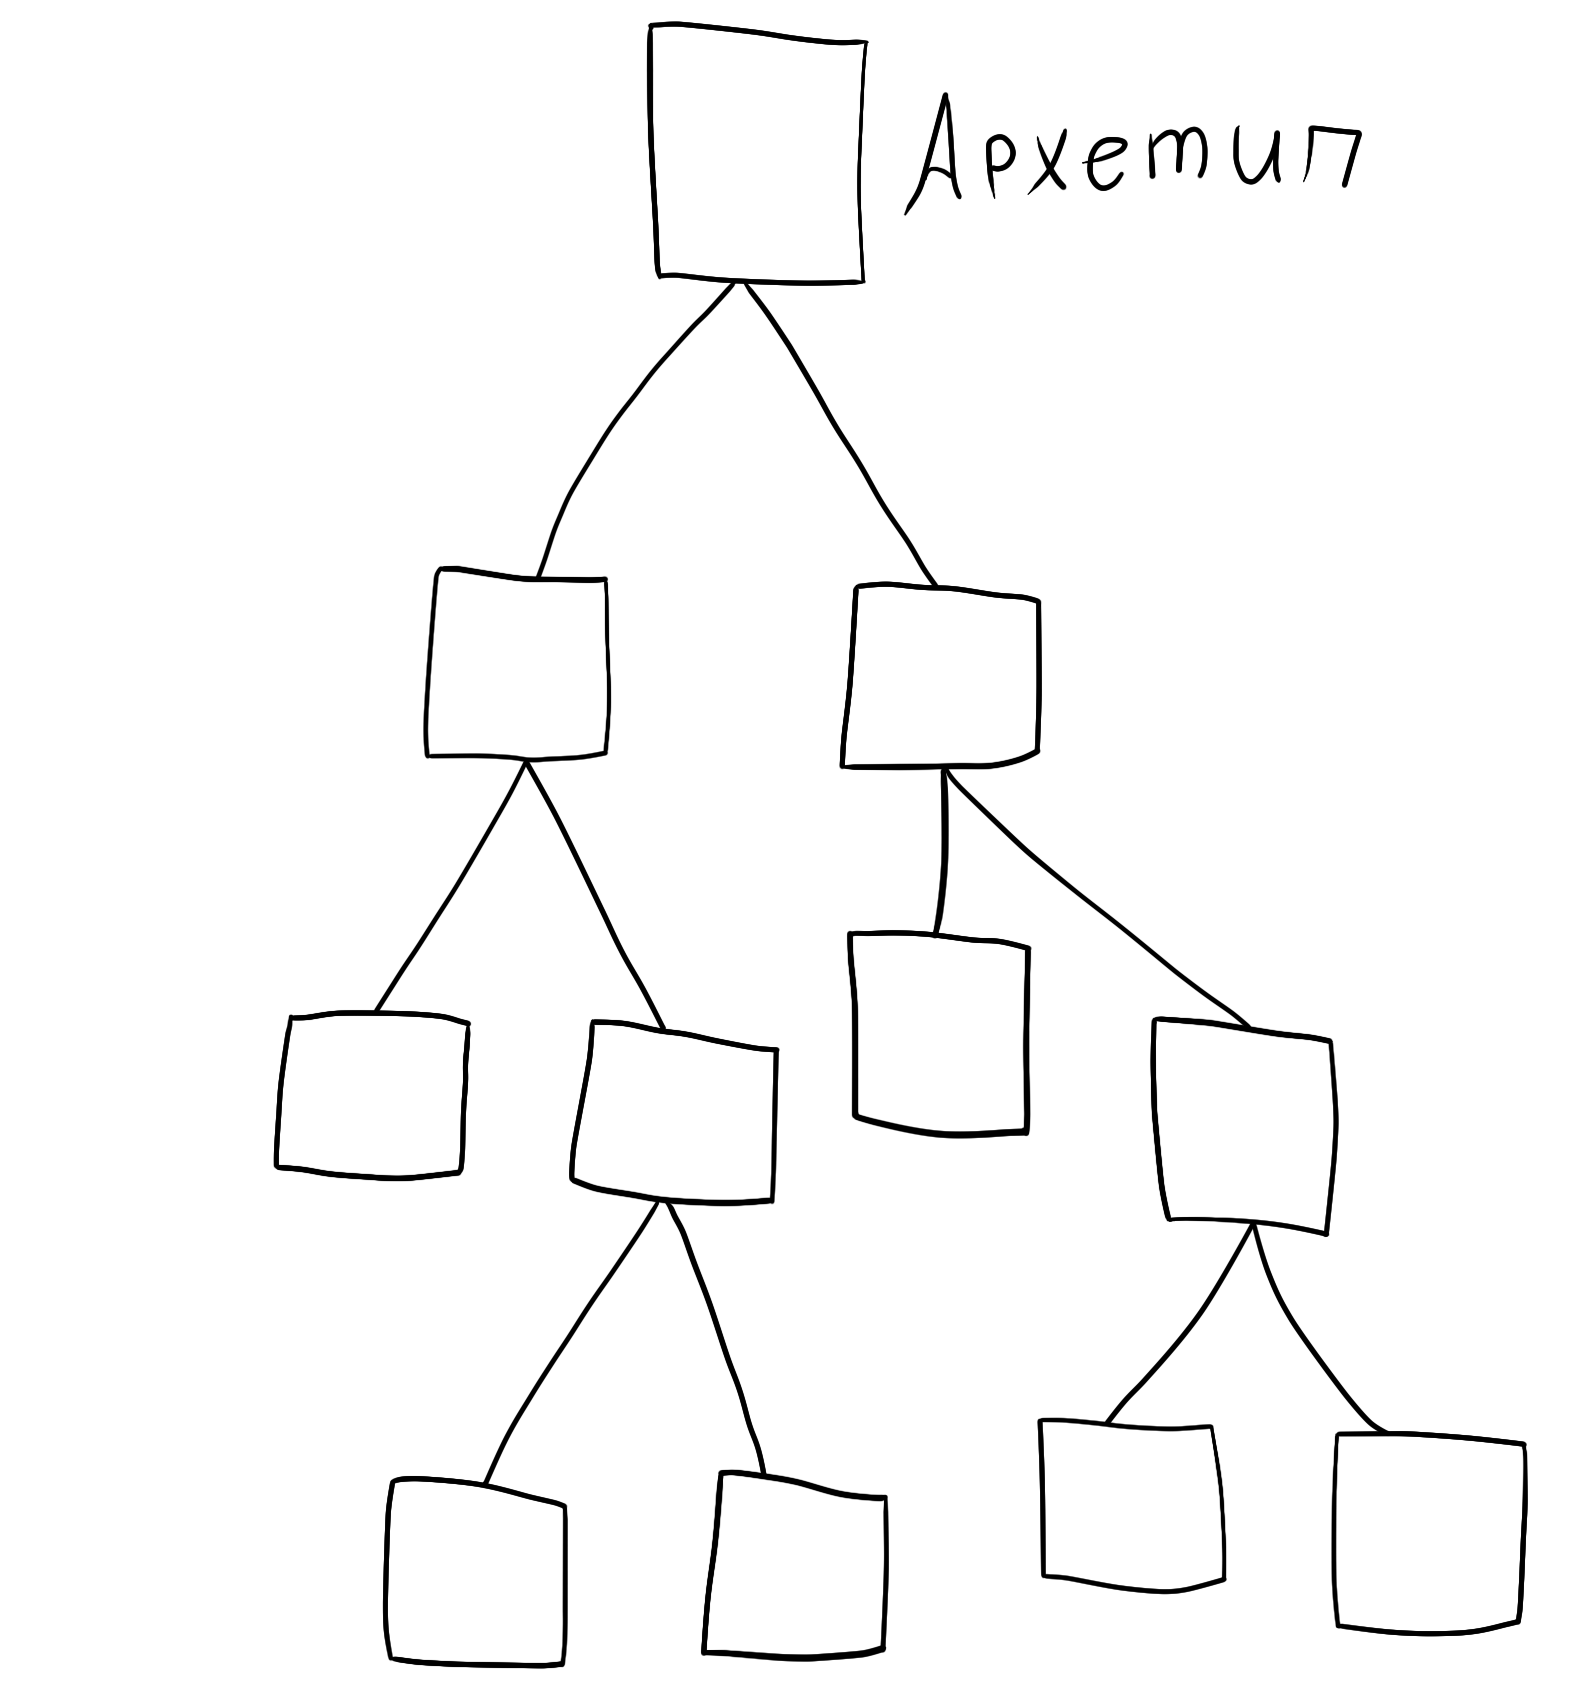 Архетип